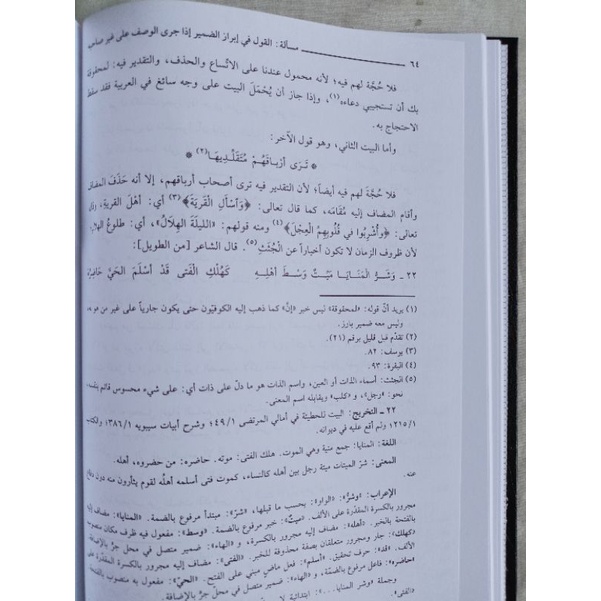 ٦٤ مسألة: القول في إبراز الضمير إذا جرى الوصف على غير صاحبه
فلا حُجَّة لهم فيه؛ لأنه محمول عندنا على الاتِّساع والحذف، والتقدير فيه: لمحقوقة
بك أن تستجيبي دعاءه(١)، وإذا جاز أن يُحْمَلَ البيت على وجه سائغ في العربية فقد سقط
الاحتجاج به.
وأما البيت الثاني، وهو قول الآخر:
* تَرَى أَرْبَاقَهُمْ مُتَقَلِّدِيهَا(٢) *
فلا حُجَّةَ لهم فيه أيضاً؛ لأن التقدير فيه ترى أصحاب أرباقهم، إلا أنه حَذَفَ المضاف
وأقام المضاف إليه مُقَامَه، كما قال تعالى: ﴿وَاسْأَلِ الْقَرْيَةَ﴾(٣) أي: أهْلَ القريةِ، وقال
تعالى: ﴿وَأُشْرِبُوا فِي قُلُوبِهِمُ الْعِجْلَ﴾(٤) ومنه قولهم: «الليلةَ الهِلَالُ»، أي: طلوعُ الهلال؛
لأن ظروف الزمان لا تكون أخباراً عن الْجُثَثِ(٥). قال الشاعر [من الطويل]:
٢٢ ـ وَشَرُّ الْمَنَايَا مَيِّتٌ وَسْطَ أَهْلِهِ كَهُلْكِ الْفَتَى قَدْ أَسْلَمَ الْحَيَّ حَاضِرُهْ
(١) يريد أنّ قوله: «لمحقوقة» ليس خبر «إنّ» كما ذهب إليه الكوفيّون حتى يكون جارياً على غير من هو له،
وليس معه ضمير بارز.
(٢) تقدّم قبل قليل برقم (٢١).
(٣) يوسف: ٨٢.
(٤) البقرة: ٩٣.
(٥) الجثث: أسماء الذات أو العين، واسم الذات هو ما دلّ على ذات أي: على شيء محسوس قائم بنفسه،
نحو: «رجل»، و «كلب» ويقابله اسم المعنى.
٢٢ ـ التخريج: البيت للحطيئة في أمالي المرتضى ٤٩/١؛ وشرح أبيات سيبويه ٣٨٦/١؛ والكتاب
٢١٥/١؛ ولم أقع عليه في ديوانه.
اللغة: المنايا: جمع منية وهي الموت. هلك الفتى: موته. حاضره: من حضروه، أهله.
المعنى: شرّ الميتات ميتة رجل بين أهله كالنساء، كموت فتى أسلمه أهله لقوم يثأرون منه دون دفاع
عنه.
الإعراب: «وشرّ»: «الواو»: بحسب ما قبلها، «شرّ»: مبتدأ مرفوع بالضمة. «المنايا»: مضاف إليه
مجرور بالكسرة المقدّرة على الألف. «ميّت»: خبر مرفوع بالضمة. «وسط»: مفعول فيه ظرف مكان منصوب
بالفتحة بالخبر. «أهله»: مضاف إليه مجرور بالكسرة، و «الهاء»: ضمير متصل في محلّ جرّ بالإضافة.
«كهلك»: جار ومجرور متعلقان بصفة محذوفة للخبر. «الفتى»: مضاف إليه مجرور بالكسرة المقدّرة على
الألف. «قد»: حرف تحقيق. «أسلم»: فعل ماضٍ مبني على الفتح. «الحيّ»: مفعول به منصوب بالفتحة.
«حاضره»: فاعل مرفوع بالضمّة، و «الهاء»: ضمير متصل في محلّ جرّ بالإضافة.
وجملة «وشر المنايا ...»: ابتدائية لا
«الفتى».